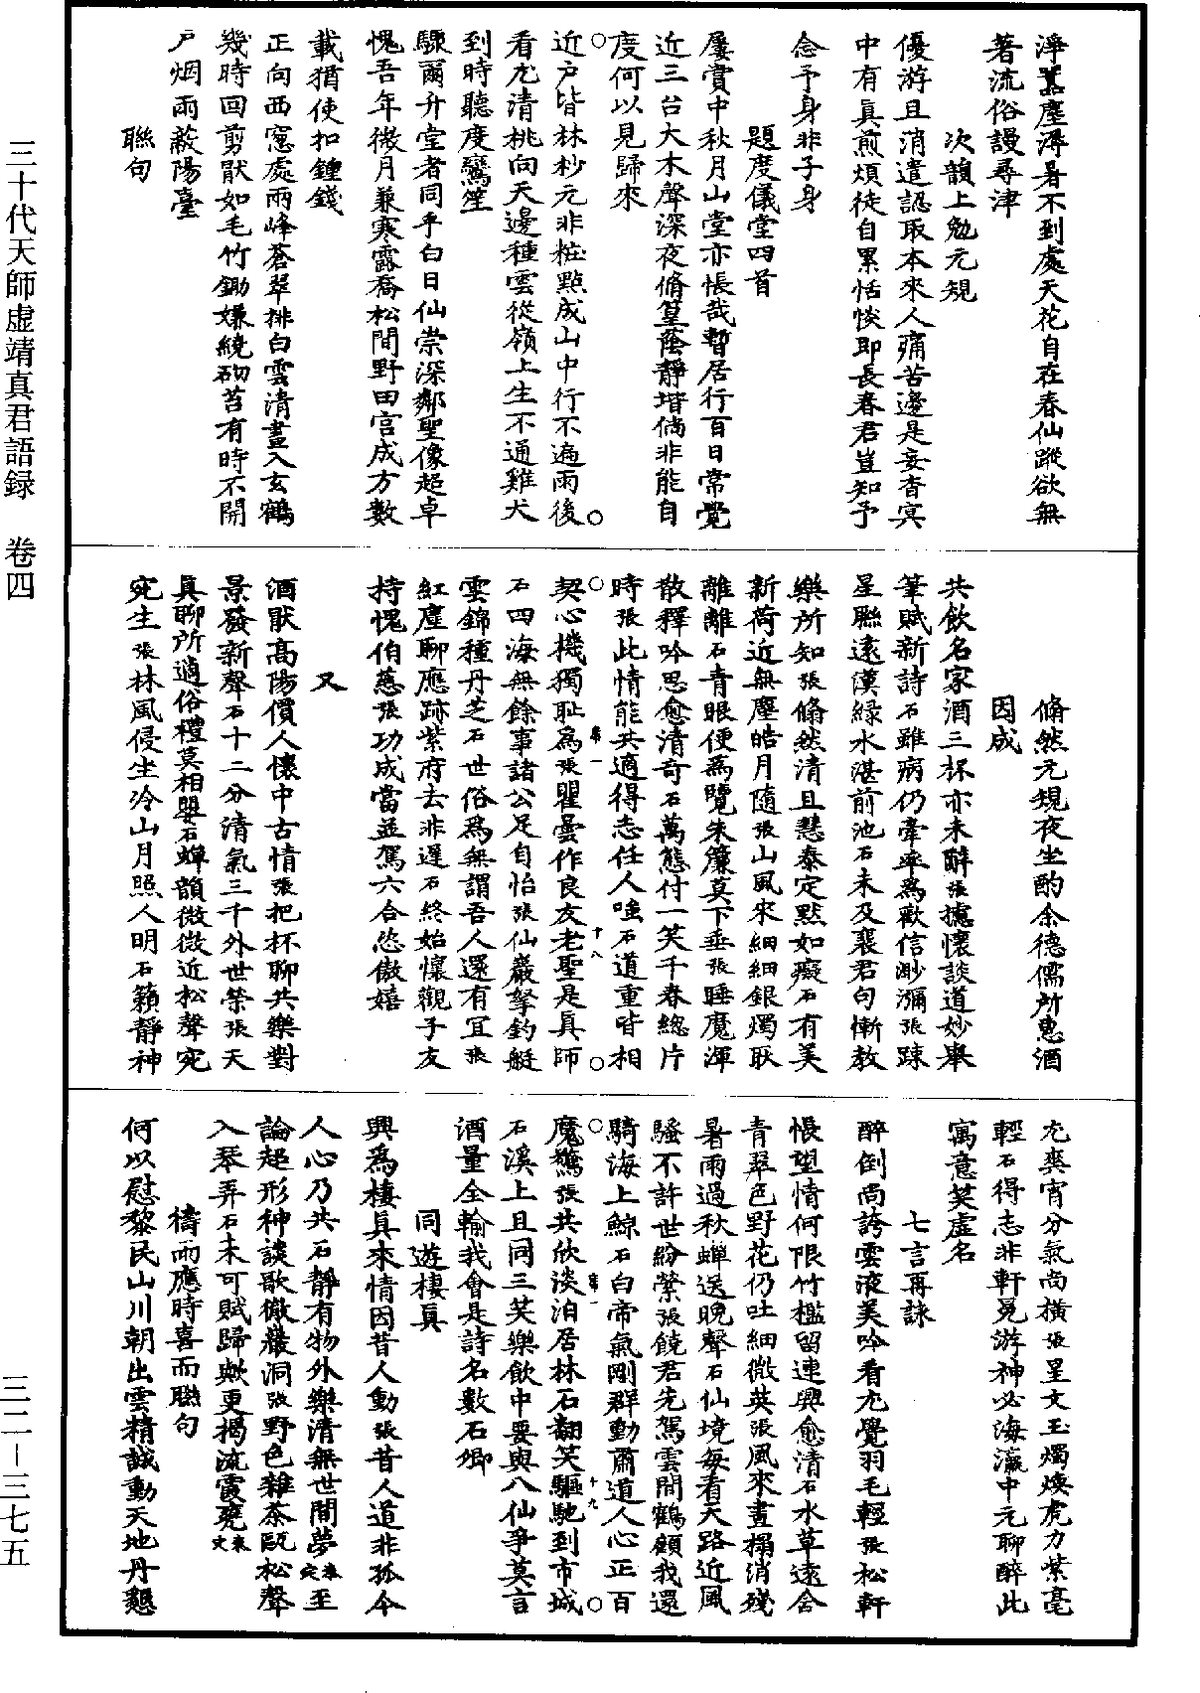 淨囂塵潯暑不到處天花自在春仙蹤欲無
著流俗謾尋津
次韻上勉元規
優游且消遣認取本來人痛苦邊是妄杳冥
中有真煎煩徒自累恬惔即長春君豈知予
念予身非子身
題度儀堂四首
屢賞中秋月山堂亦悵哉暫居行百日常覺
近三台大木聲深夜脩篁蔭靜堦倘非能自
度何以見歸來
近户皆林杪元非粧點成山中行不遍雨後
看尤清桃向天邊種雲從嶺上生不通雞犬
到時聽度鸞笙
驟爾升堂者同乎白日仙崇深鄰聖像超卓
愧吾年微月兼寒露喬松間野田宫成方數
載猶使扣鍾錢
正向西窻處兩峰蒼翠排白雲清晝入玄鶴
幾時回剪猒如毛竹鋤嫌繞砌苔有時不開
户烟雨蔽陽臺
聯句
脩然元規夜坐酌余德儒所惠酒
因成
共飲名家酒三杯亦未醉張攄懷談道妙舉
筆賦新詩石雖病仍牽率為歡信渺瀰張踈
星聯遠漢緑水湛前池石未及襄君句慚教
樂所知張脩然清且慧泰定默如癡石有美
新荷近無塵皓月隨張山風來細細銀燭耿
離離石青眼便為覽朱簾莫下垂張睡魔渾
散釋吟思愈清奇石萬態付一笑千春緫片
時張此情能共適得志任人嗤石道重皆相
契心機獨耻為張瞿曇作良友老聖是真師
石四海無餘事諸公足自怡張仙巖拏釣艇
雲錦種丹芝石世俗為無謂吾人還有宜張
紅塵聊應跡紫府去非遲石終始懷觀子友
持愧伯慈張功成當並駕六合恣傲嬉
又
酒猒高陽價人懷中古情張把杯聊共樂對
景發新聲石十二分清氣三千外世榮張天
真聊所適俗禮莫相嬰石蟬韻微微近松聲宛
宛生張林風侵坐冷山月照人明石籟靜神
尤爽宵分氣尚橫張呈文玉燭煥虎力紫毫
輕石得志非軒冕游神必海瀛中元聊醉此
寓意笑虛名
七言再詠
醉倒尚誇雲液美吟看尤覺羽毛輕張松軒
悵望情何限竹檻留連興愈清石水草遠含
青翠色野花仍吐細微英張風來晝榻消殘
暑雨過秋蟬送晚聲石仙境每看天路近風
騷不許世紛縈張饒君先駕雲間鶴顧我還
騎海上鯨石白帝氣剛群動肅道人心正百
魔驚張共欣淡泊居林石翻笑驅馳到市城
石溪上且同三笑樂飲中要與八仙爭莫言
酒量全輸我會是詩名數石卿
同遊棲真
興為棲真來情因昔人動張昔人道非孤今
人心乃共石靜有物外樂清無世間夢至
論超形神談歌徹巖洞張野色雜茶甌松聲
入琴弄石未可賦歸歟更揭流霞甕
禱雨應時喜而聯句
何以慰黎民山川朝出雲精誠動天地丹懇
三十代天師虛靖真君語録 卷四
三二－三七五
席一
十八
席一
十九